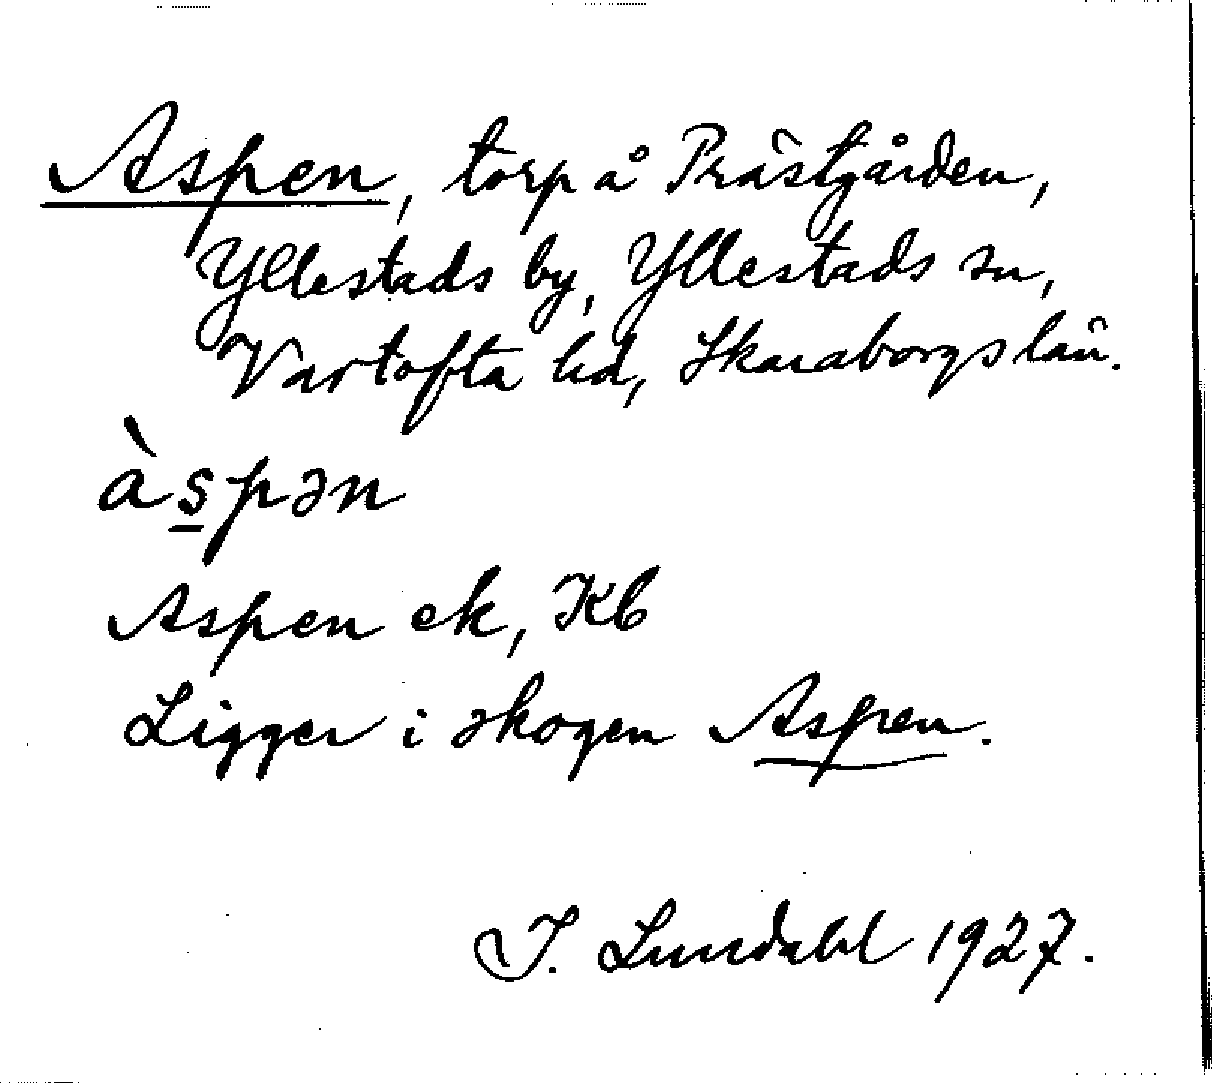 Aspen, torp å Prästgården,
Yllestads by, Yllestads sn,
Vartofta hd, Skaraborgs län.
às̲pən
Aspen ek, Kb
Ligger i skogen Aspen.
I. Lundahl 1927.